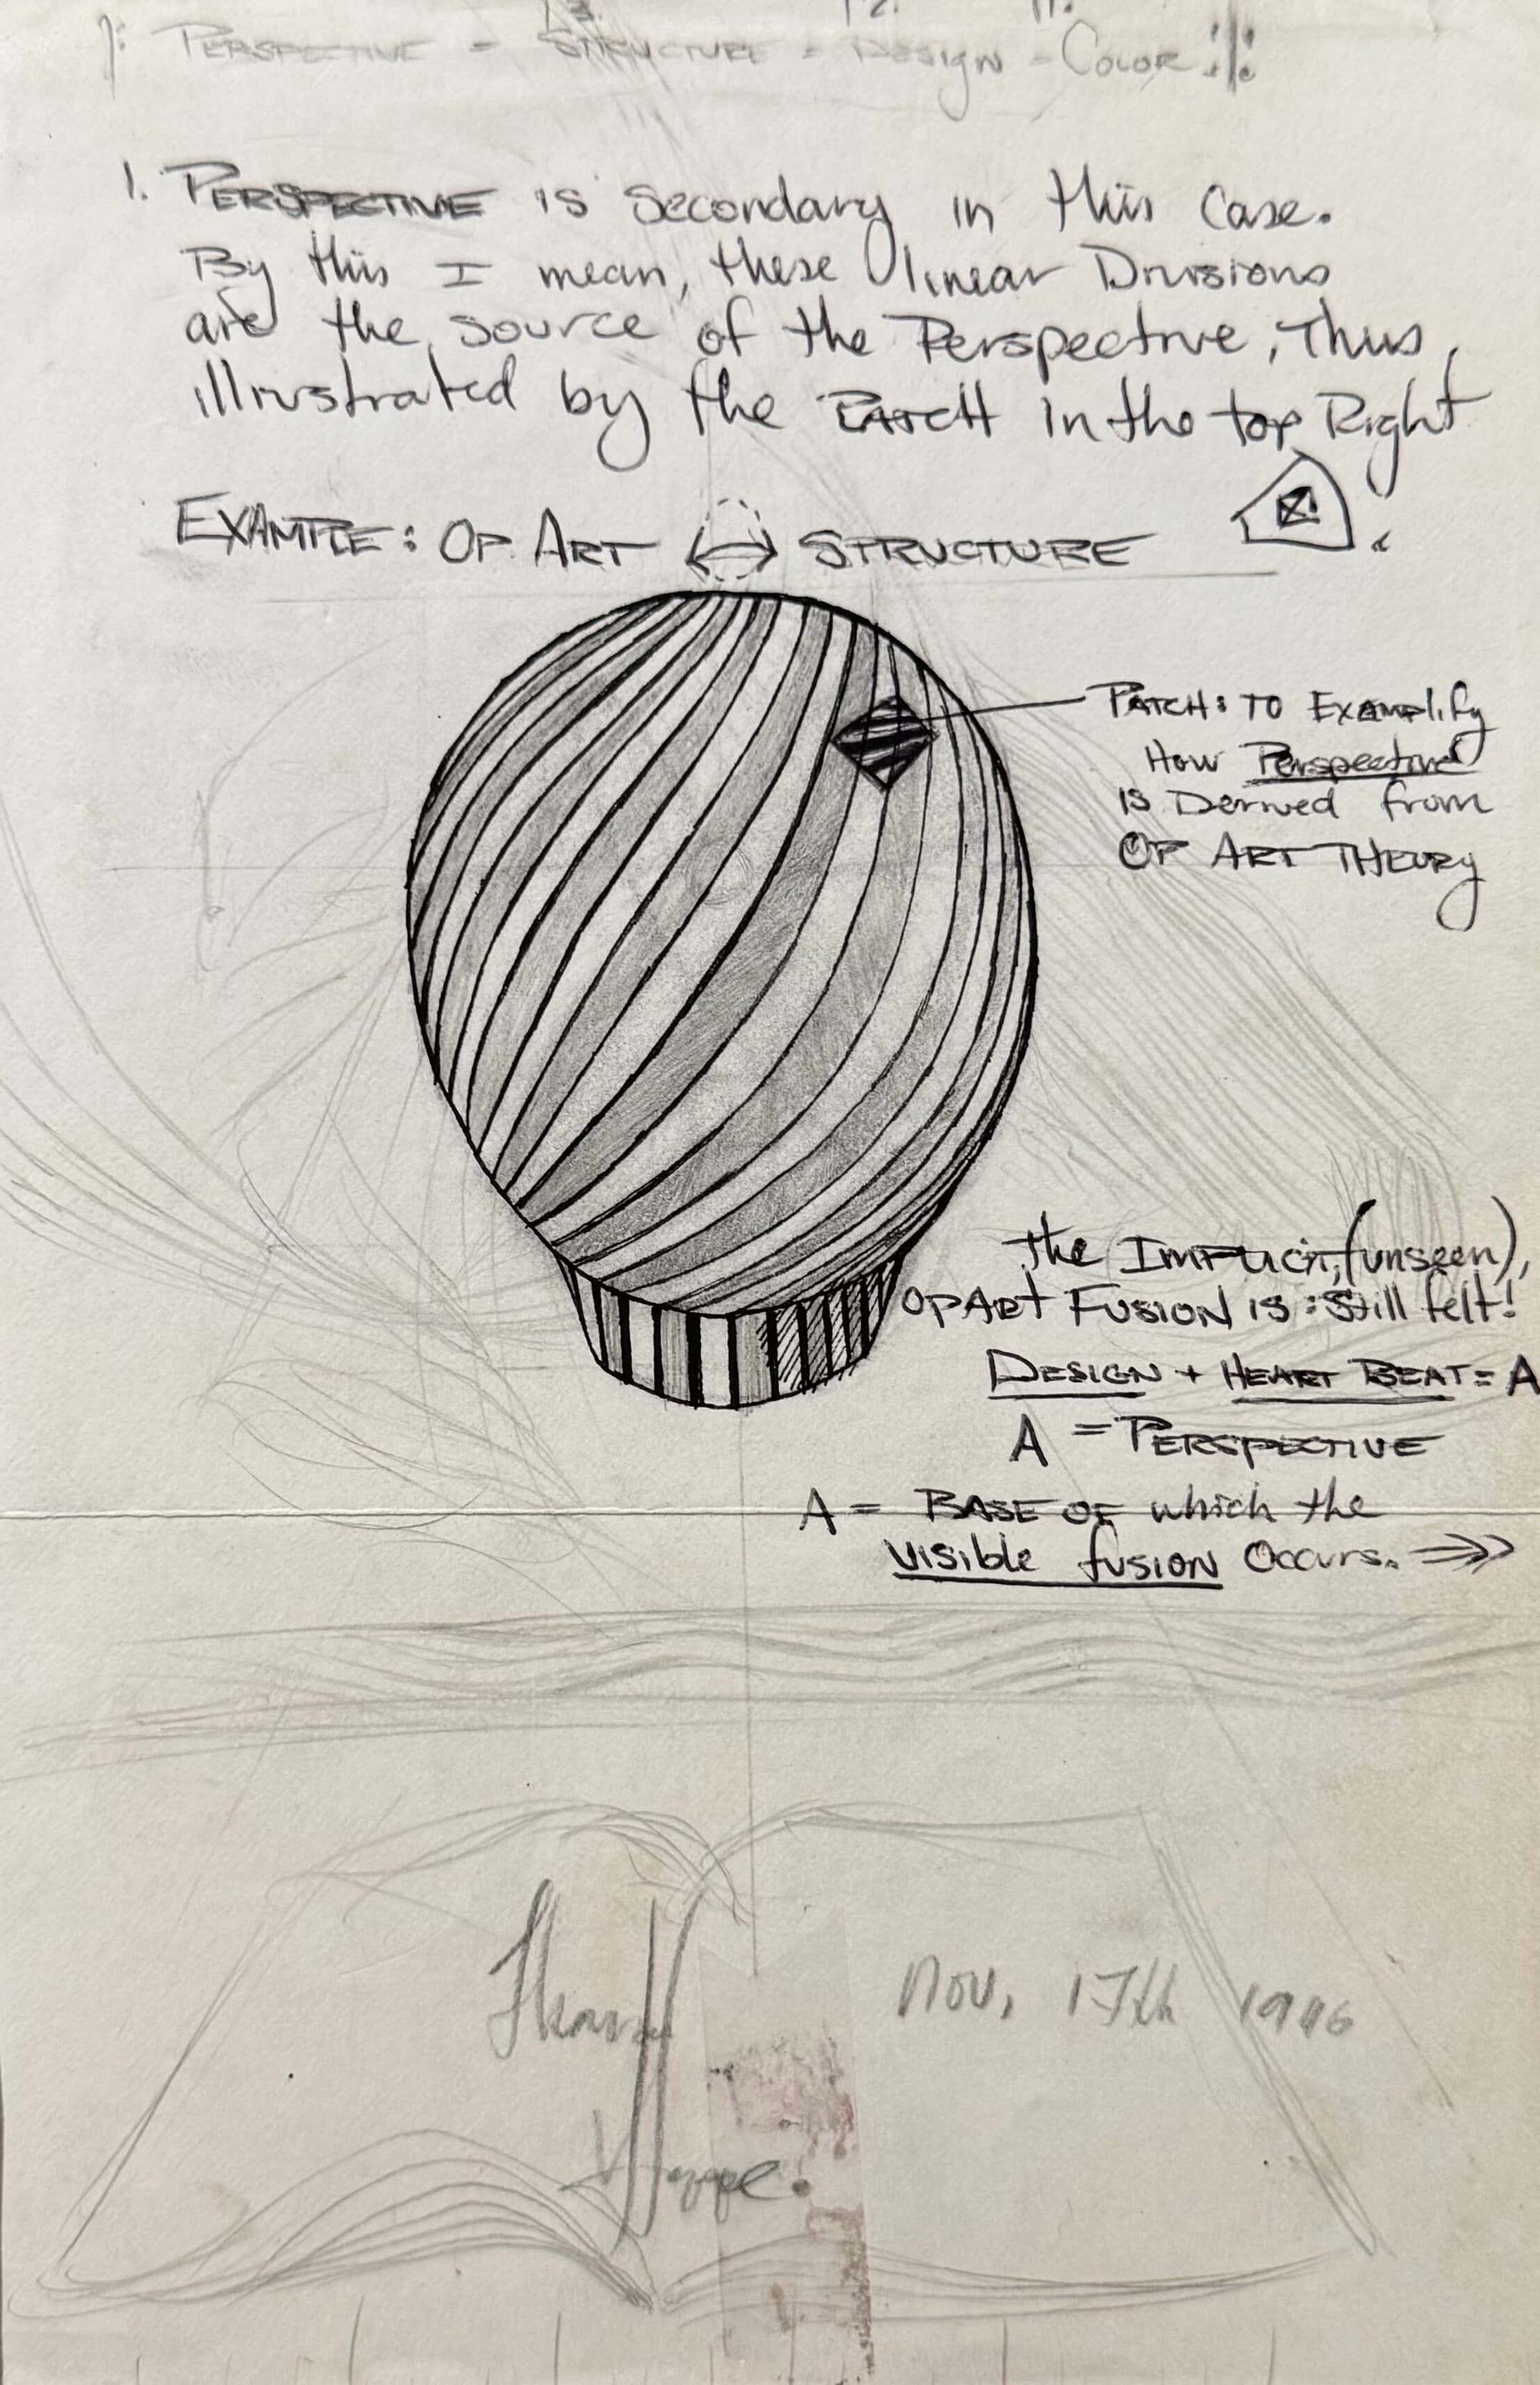 13. 12. 11.
PERSPECTIVE = STRUCTURE = DESIGN = COLOR
1. PERSPECTIVE is secondary in this case.
By this I mean, these linear Divisions
are the source of the Perspective, Thus,
illustrated by the PATCH in the top Right
EXAMPLE: OP ART STRUCTURE
PATCH: TO EXAMPLIFY
How Perspective
is Derived from
OP ART THEORY
The IMPLICIT, (unseen),
OP ART FUSION IS: Still felt!
DESIGN + HEART BEAT = A
A = PERSPECTIVE
A = BASE OF which the
visible fusion Occurs.
Nov. 17th